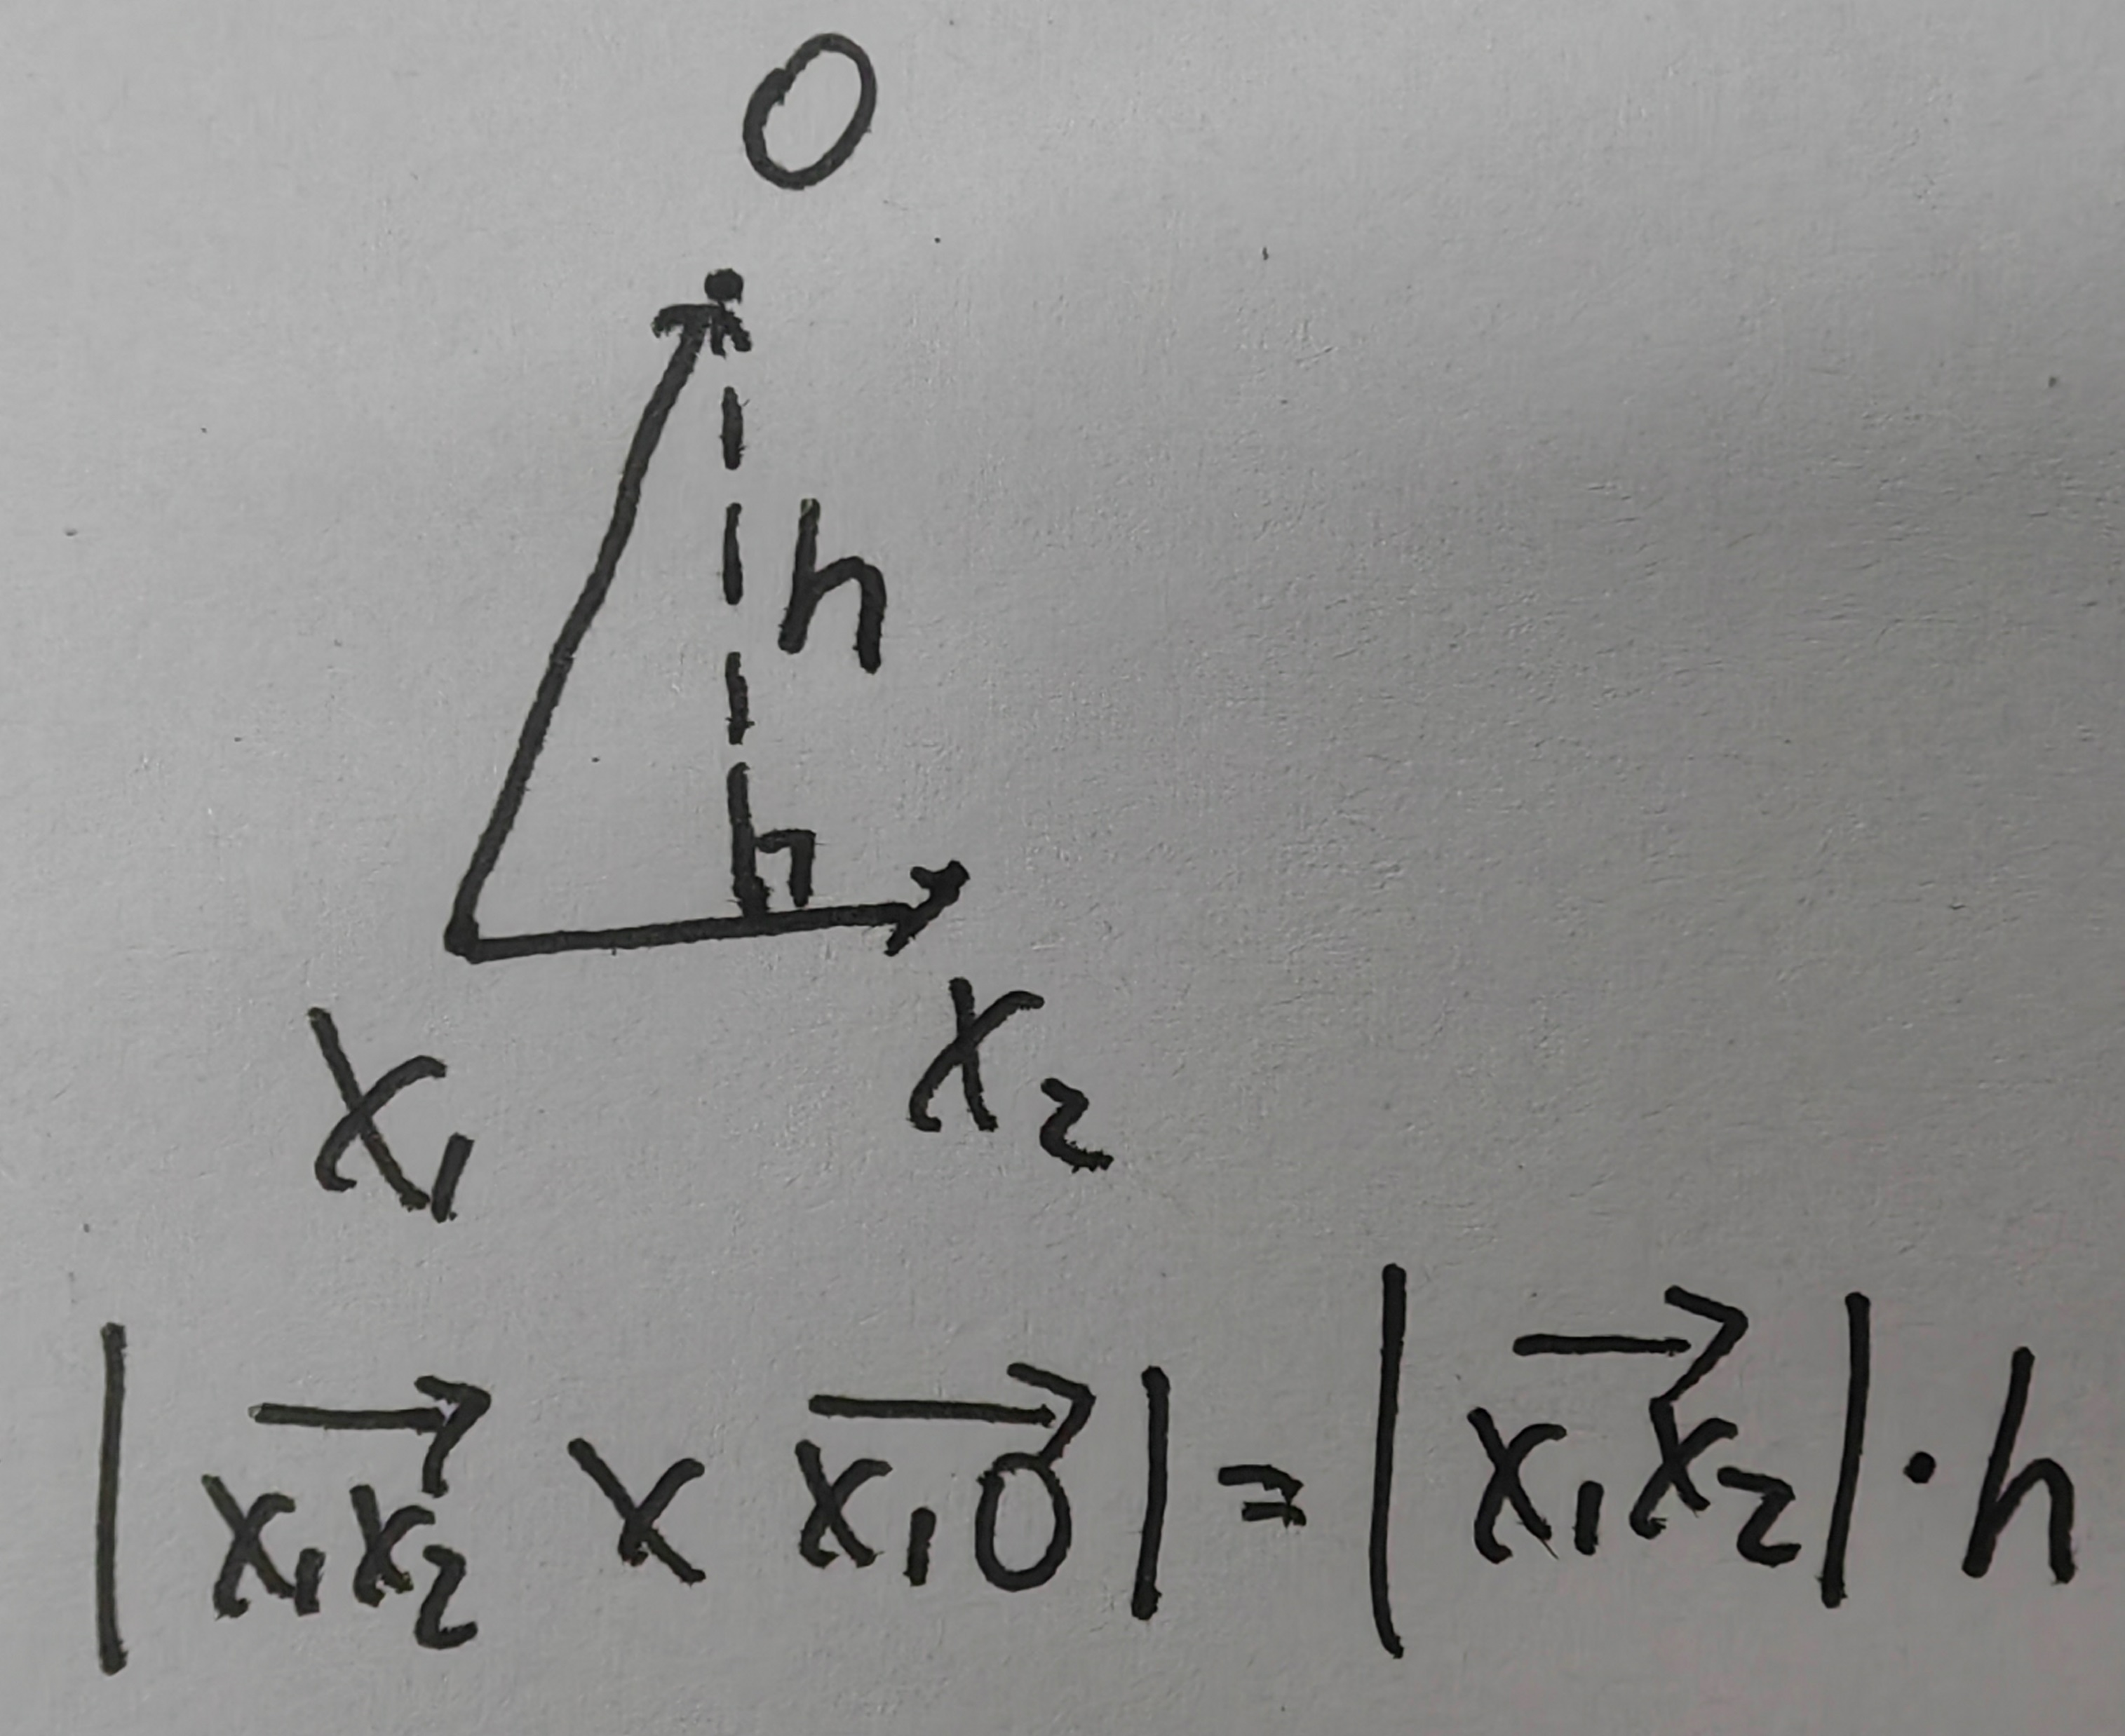 O
h
x₁
x₂
|x₁x₂⃗ × x₁O⃗| = |x₁x₂⃗| · h